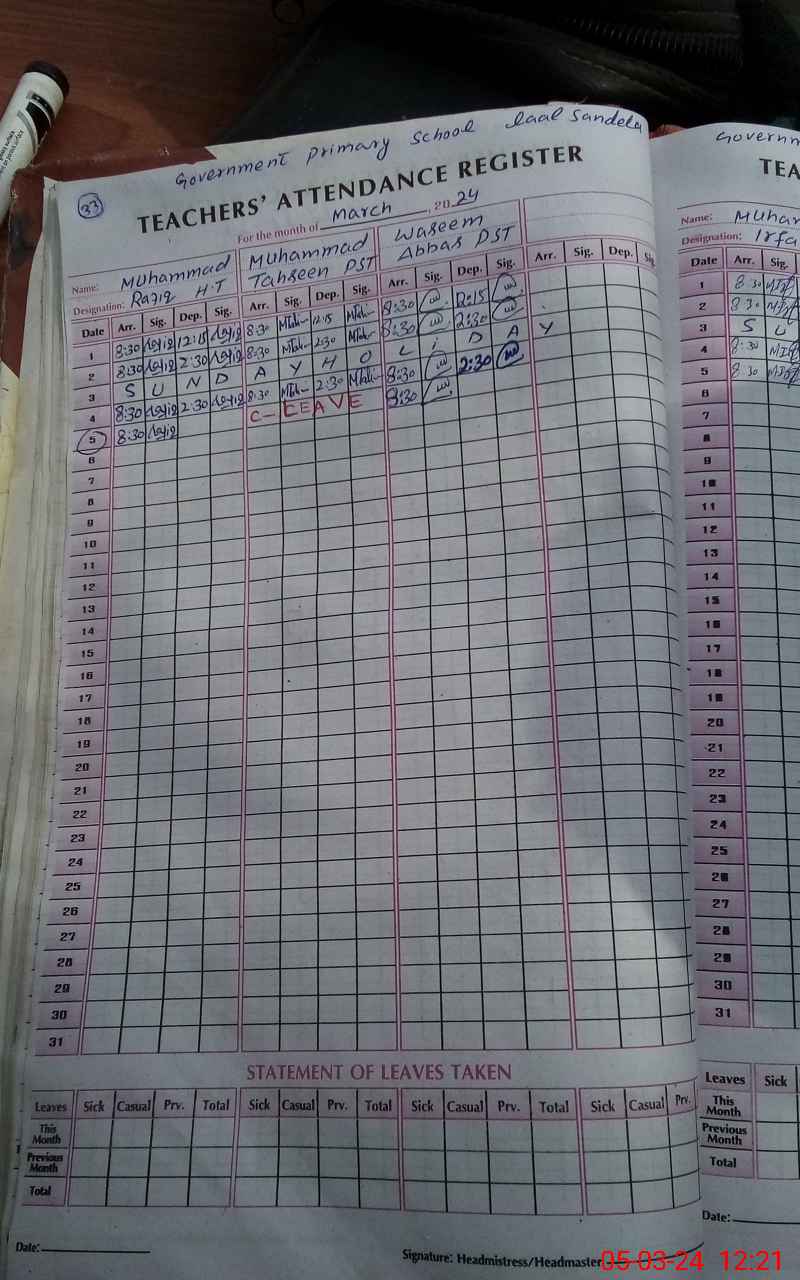 Government primary school Laal Sandela
33
TEACHERS' ATTENDANCE REGISTER
For the month of March, 2024
Name: Muhammad Muhammad Waseem
Designation: Raziq H.T Tahseen PST Abbas PST
Date Arr. Sig. Dep. Sig. Arr. Sig. Dep. Sig. Arr. Sig. Dep. Sig. Arr. Sig. Dep. Sig.
1 8:30 12:15 8:30 12:15 8:30 12:15
2 8:30 2:30 8:30 2:30 8:30 2:30
3 S U N D A Y H O L i D A Y
4 8:30 2:30 8:30 2:30 8:30 2:30
5 8:30 C - LEAVE 8:30
6
7
8
9
10
11
12
13
14
15
16
17
18
19
20
21
22
23
24
25
26
27
28
29
30
31
STATEMENT OF LEAVES TAKEN
Leaves Sick Casual Prv. Total Sick Casual Prv. Total Sick Casual Prv. Total Sick Casual Prv.
This Month
Previous Month
Total
Date:
Signature: Headmistress/Headmaster
Governm
TEA
Name: Muham
Designation: Irfa
Date Arr. Sig.
1 8:30
2 8:30
3 S U
4 8:30
5 8:30
6
7
8
9
10
11
12
13
14
15
16
17
18
19
20
21
22
23
24
25
26
27
28
29
30
31
Leaves Sick
This Month
Previous Month
Total
Date:
05-03-24 12:21